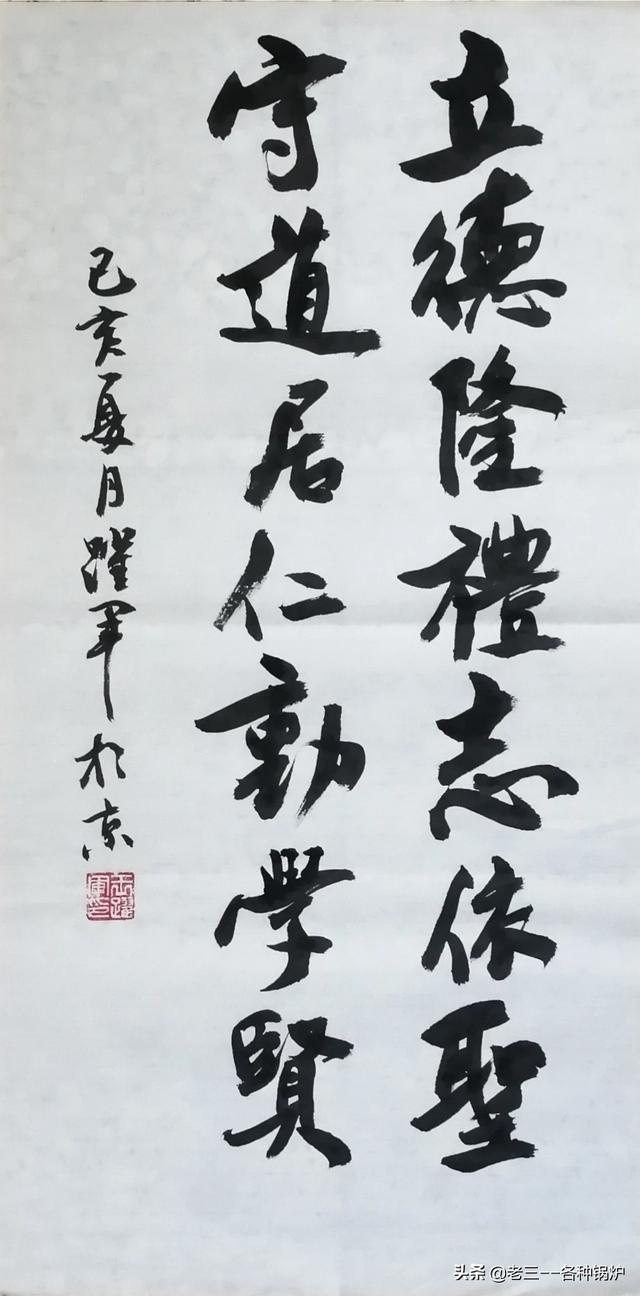 立德隆禮志依聖
守道居仁動學賢
己亥夏月躍军於京
头条 @老三--各种锅炉